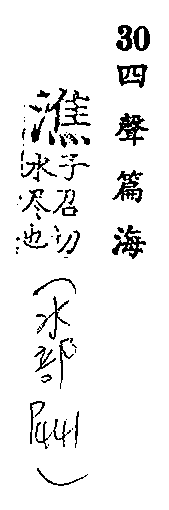 30四聲篇海
潐子召切
水尽也
(水部P441)